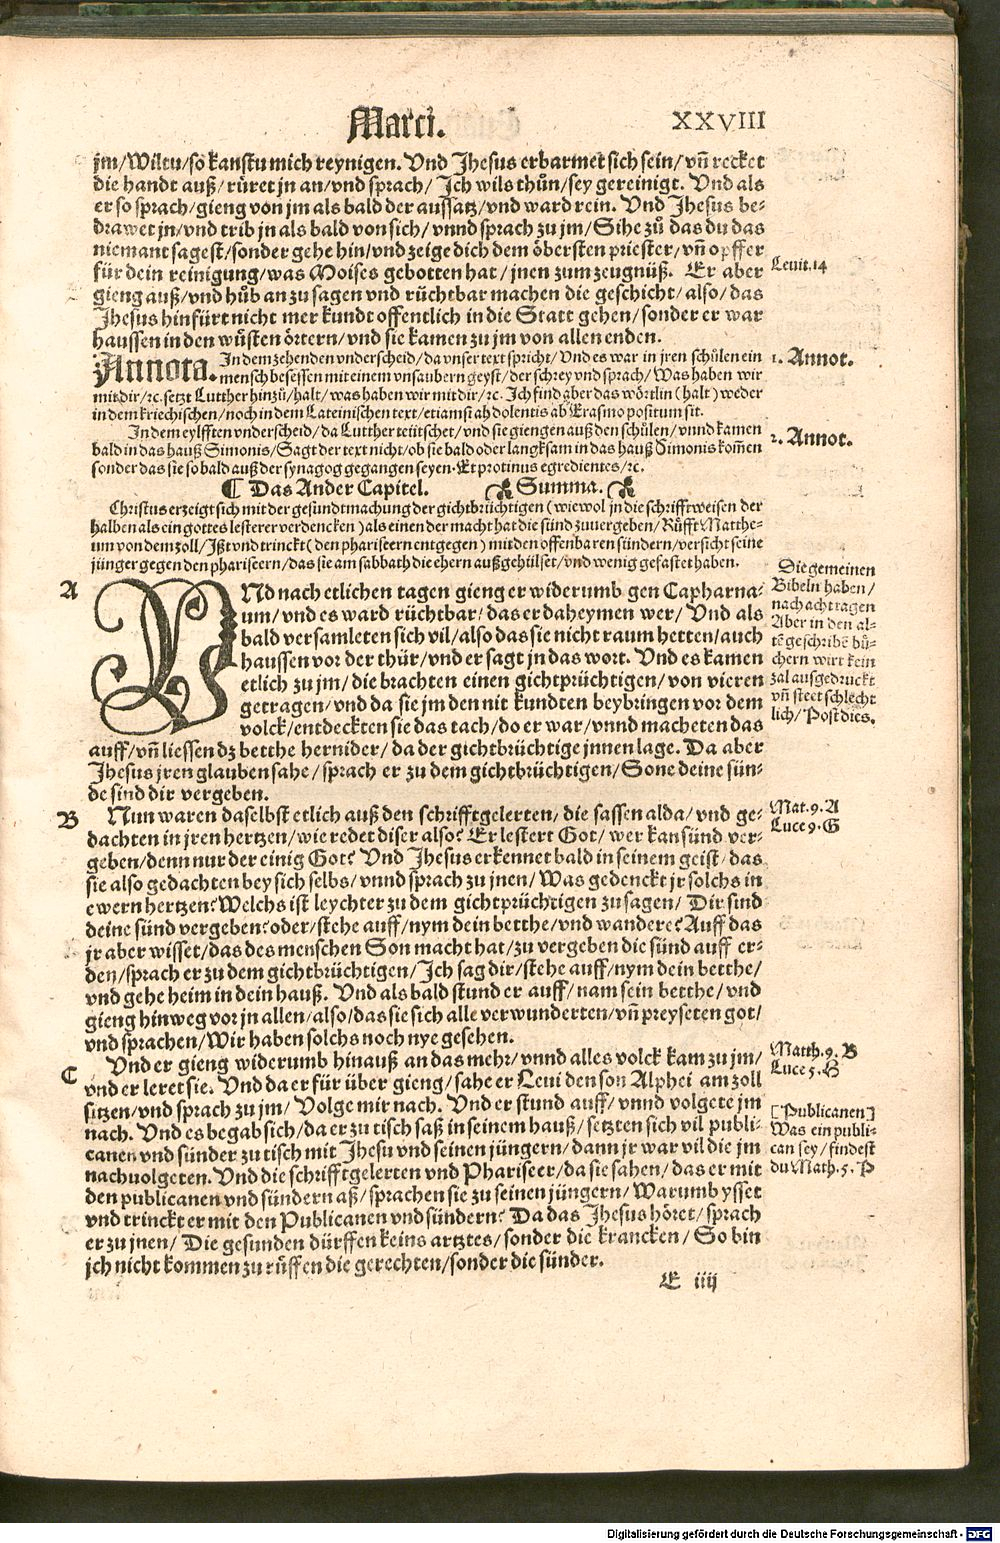 Marci. XXVIII
jm/Wiltu/so kanstu mich reynigen. Vnd Jhesus erbarmet sich sein/vñ recket
die handt auß/rüret jn an/vnd sprach/ Ich wils thůn/sey gereinigt. Vnd als
er so sprach/gieng von jm als bald der aussatz/vnd ward rein. Vnd Jhesus be-
drawet jn/vnd trib jn als bald von sich/ vnnd sprach zu jm/ Sihe zů das du das
niemant sagest/sonder gehe hin/vnd zeige dich dem öbersten priester/vñ opffer
für dein reinigung/was Moises gebotten hat/jnen zum zeugnüß. Er aber
gieng auß/vnd hůb an zu sagen vnd rüchtbar machen die geschicht/also/das
Jhesus hinfürt nicht mer kundt offentlich in die Statt gehen/sonder er war
haussen in den wůsten örtern/vnd sie kamen zu jm von allen enden.
Leuit.14
Annota. In dem zehenden vnderscheid/da vnser text spricht/Vnd es war in jren schůlen ein
mensch besessen mit einem vnsaubern geyst/der schrey vnd sprach/Was haben wir
mit dir/ꝛc. setzt Lutther hinzů/halt/was haben wir mit dir/ꝛc. Ich find aber das wörtlin (halt) weder
in dem kriechischen/noch in dem Lateinischen text/etiamsi ah dolentis ab Erasmo positum sit.
1. Annot.
In dem eylfften vnderscheid/da Lutther teütschet/vnd sie giengen auß den schůlen/vnnd kamen
bald in das hauß Simonis/Sagt der text nicht/ob sie bald oder langksam in das hauß Simonis kom̃en
sonder das sie so bald auß der synagog gegangen seyen. Et protinus egredientes/ꝛc.
2. Annot.
¶ Das Ander Capitel. Summa.
Christus erzeigt sich mit der gesundtmachung der gichtbrüchtigen (wiewol jn die schrifftweisen der
halben als ein gottes lesterer verdencken) als einen der macht hat die sünd zuuergeben/Růfft Matthe-
um von dem zoll/Ißt vnd trinckt (den phariseern entgegen) mit den offenbaren sündern/versicht seine
jünger gegen den phariseern/das sie am sabbath die ehern außgehülset/vnd wenig gefastet haben.
A
VNd nach etlichen tagen gieng er widerumb gen Capharna-
um/vnd es ward rüchtbar/das er daheymen wer/ Vnd als
bald versamleten sich vil/also das sie nicht raum hetten/auch
haussen vor der thür/vnd er sagt jn das wort. Vnd es kamen
etlich zu jm/die brachten einen gichtprüchtigen/von vieren
getragen/vnd da sie jm den nit kundten beybringen vor dem
volck/entdeckten sie das tach/do er war/vnnd macheten das
auff/vñ liessen dz betthe hernider/da der gichtbrüchtige jnnen lage. Da aber
Jhesus jren glauben sahe/sprach er zu dem gichtbrüchtigen/Sone deine sün-
de sind dir vergeben.
Die gemeinen
Bibeln haben/
nach acht tagen
Aber in den al-
tẽ geschribẽ bů-
chern wirt kein
zal ausgedruckt
vñ steet schlecht
lich/Post dies.
B
Nun waren daselbst etlich auß den schrifftgelerten/die sassen alda/vnd ge-
dachten in jren hertzen/wie redet diser also? Er lestert Got/wer kan sünd ver-
geben/denn nur der einig Got? Vnd Jhesus erkennet bald in seinem geist/das
sie also gedachten bey sich selbs/vnnd sprach zu jnen/Was gedenckt jr solchs in
ewern hertzen? Welchs ist leychter zu dem gichtprüchtigen zusagen/ Dir sind
deine sünd vergeben? oder/stehe auff/nym dein betthe/vnd wandere? Auff das
jr aber wisset/das des menschen Son macht hat/zu vergeben die sünd auff er-
den/sprach er zu dem gichtbrüchtigen/Ich sag dir/stehe auff/nym dein betthe/
vnd gehe heim in dein hauß. Vnd als bald stund er auff/nam sein betthe/vnd
gieng hinweg vor jn allen/also/das sie sich alle verwunderten/vñ preyseten got/
vnd sprachen/Wir haben solchs noch nye gesehen.
Mat.9.A
Luce 9.G
C
Vnd er gieng widerumb hinauß an das mehr/vnnd alles volck kam zu jm/
vnd er leret sie. Vnd da er für über gieng/sahe er Leui den son Alphei am zoll
sitzen/vnd sprach zu jm/ Volge mir nach. Vnd er stund auff/vnnd volgete jm
nach. Vnd es begab sich/da er zu tisch saß in seinem hauß/setzten sich vil publi-
canen vnd sünder zu tisch mit Jhesu vnd seinen jüngern/dann jr war vil die jm
nachuolgeten. Vnd die schrifftgelerten vnd Phariseer/da sie sahen/das er mit
den publicanen vnd sündern aß/sprachen sie zu seinen jüngern/Warumb ysset
vnd trinckt er mit den Publicanen vnd sündern? Da das Jhesus höret/sprach
er zu jnen/ Die gesunden dürffen keins artztes/sonder die krancken/ So bin
jch nicht kommen zu růffen die gerechten/sonder die sünder.
Matth.9.B
Luce 5.G
[Publicanen]
Was ein publi-
can sey/findest
du Math.5.P
E iiij
Digitalisierung gefördert durch die Deutsche Forschungsgemeinschaft - DFG